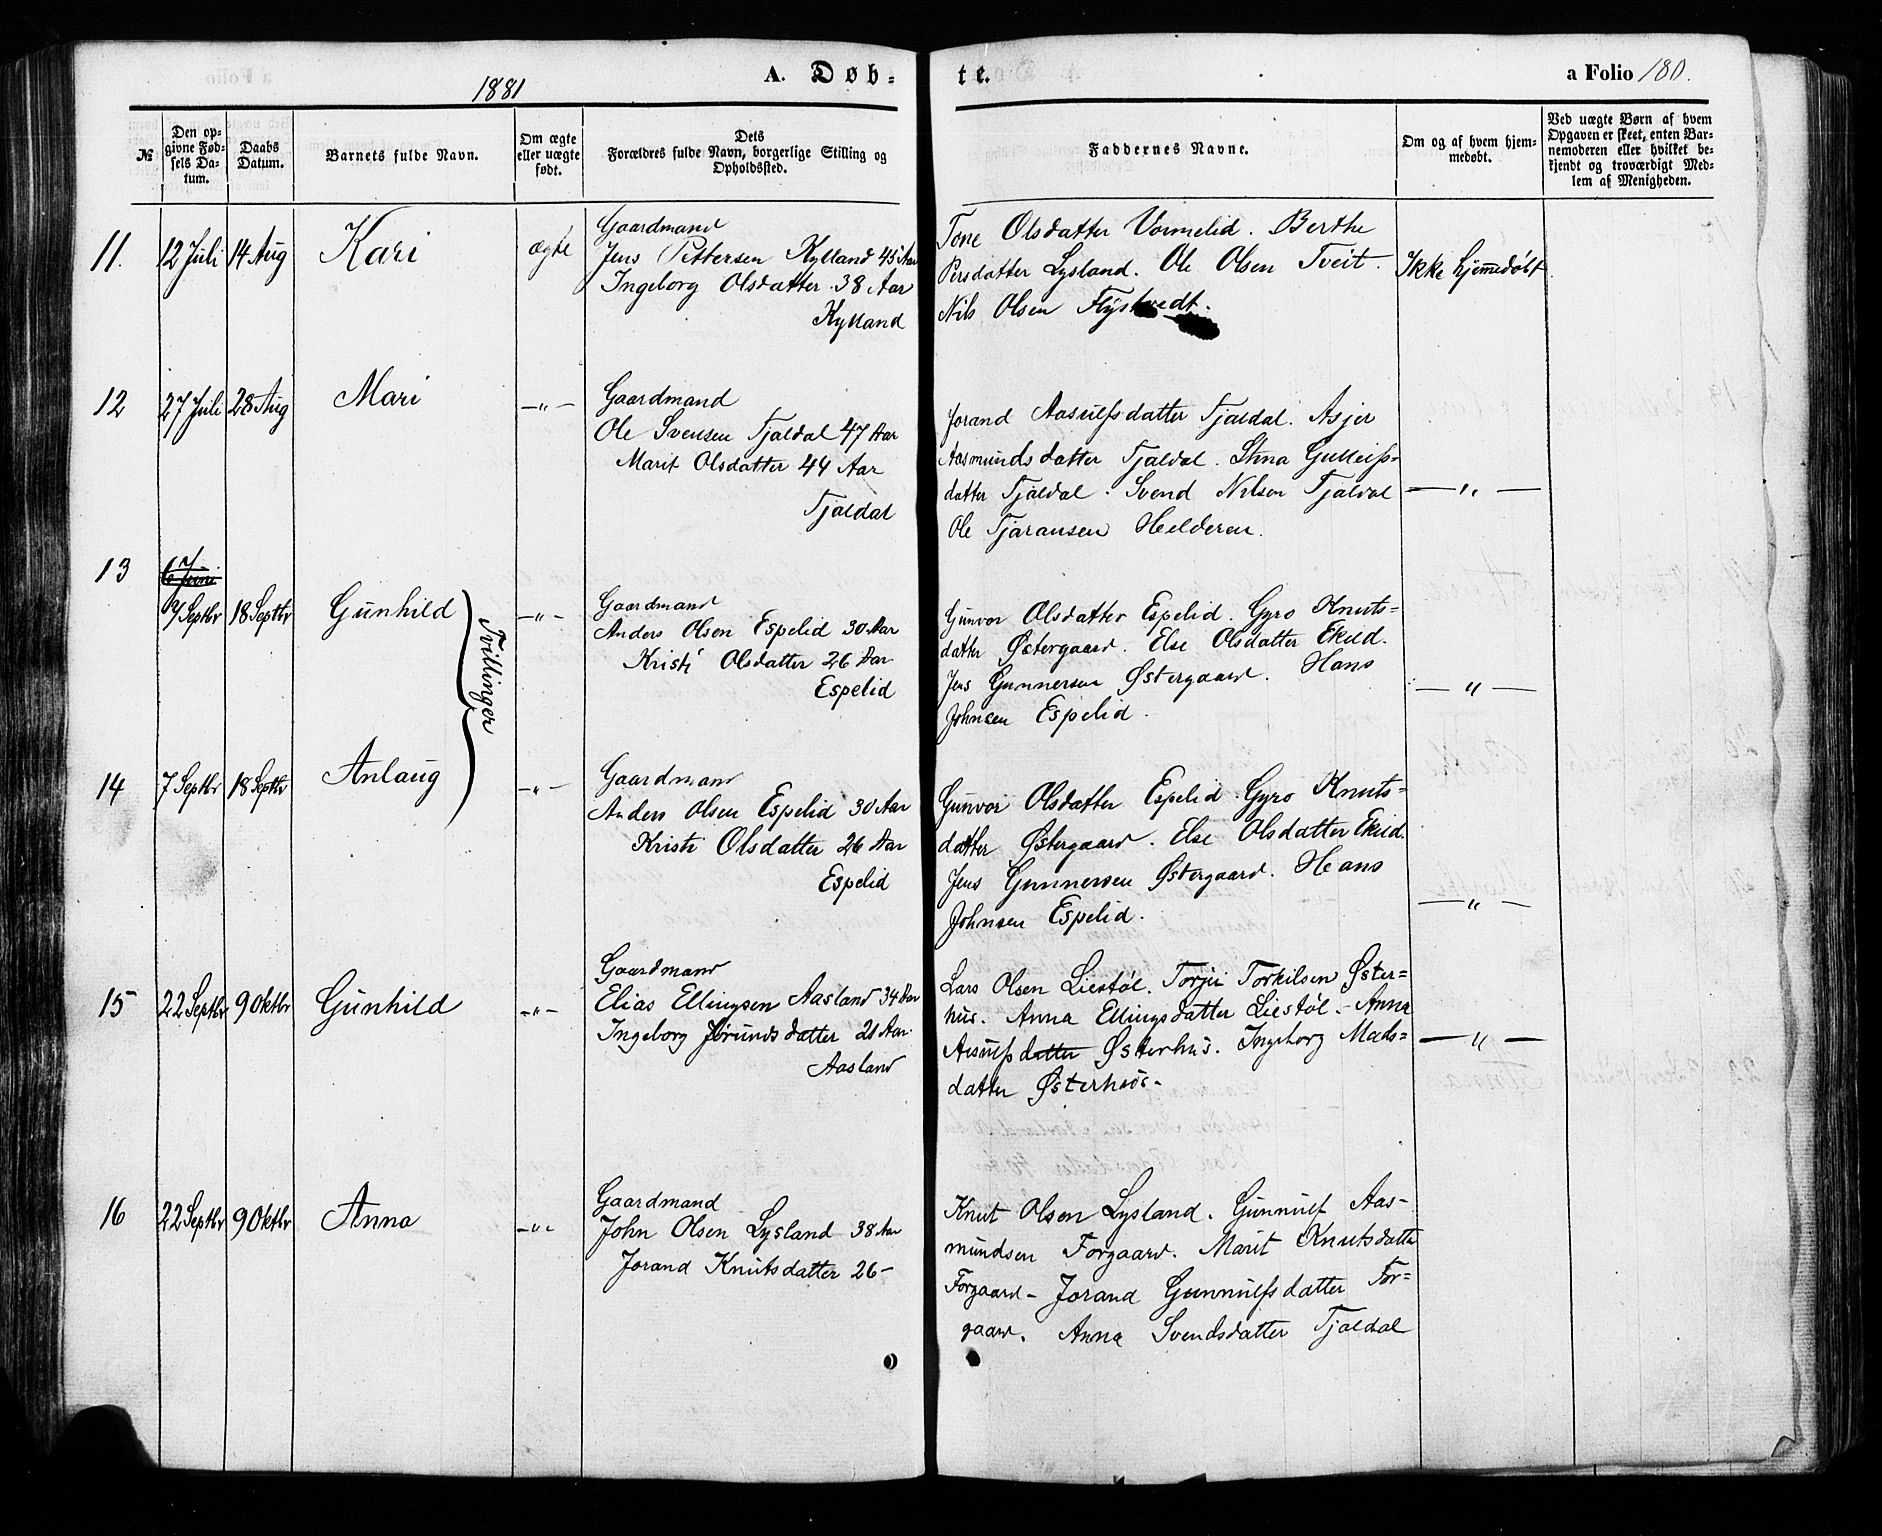 1881
A. Døbte.
a Folio 180.
№
Den opgivne Fødsels Datum.
Daabs Datum.
Barnets fulde Navn.
Om ægte eller uægte født.
Dets Forældres fulde Navn, borgerlige Stilling og Opholdssted.
Faddernes Navne.
Om og af hvem hjemmedøbt.
Ved uægte Børn af hvem Opgaven er skeet, enten Barnemoderen eller hvilket bekjendt og troværdigt Medlem af Menigheden.
11. 12 Juli 14 Aug Kari ægte
Gaardmand
Jens Pettersen Kylland 45 Aar
Ingeborg Olsdatter 38 Aar
Kylland
Tone Olsdatter Vormelid. Berthe
Persdatter Lysland. Ole Olsen Tveit.
Nils Olsen Flystvedt.
Ikke hjemmedøbt
12 27 Juli 28 Aug Mari —"—
Gaardmand
Ole Svensen Tjaldal 47 Aar
Marit Olsdatter 44 Aar
Tjaldal
Jorand Aasulfsdatter Tjaldal. Asjer
Aasmundsdatter Tjaldal. Stina Gulleifs=
datter Tjaldal. Svend Nilsen Tjaldal
Ole Tjaransen Helderen.
—"—
13 6 Juni
7 Septbr 18 Septbr Gunhild —"—
Tvillinger
Gaardmand
Anders Olsen Espelid 30 Aar
Kristi Olsdatter 26 Aar
Espelid
Gunvor Olsdatter Espelid. Gyro Knuts=
datter Østergaard. Else Olsdatter Ekeld.
Jens Gunnersen Østergaard. Hans
Johnsen Espelid.
—"—
14 7 Septbr 18 Septbr Anlaug —"—
Gaardmand
Anders Olsen Espelid 30 Aar
Kristi Olsdatter 26 Aar
Espelid
Gunvor Olsdatter Espelid. Gyro Knuts=
datter Østergaard. Else Olsdatter Ekeld.
Jens Gunnersen Østergaard. Hans
Johnsen Espelid.
—"—
15 22 Septbr 9 Oktbr Gunhild —"—
Gaardmand
Elias Ellingsen Aasland 34 Aar
Ingeborg Jørundsdatter 21 Aar.
Aasland
Lars Olsen Liestøl. Torjii Torkilsen Øster=
hus. Anna Ellingsdatter Liestøl. - Anna
Aesulfsdatter Østerhus. Ingeborg Mads=
datter Østerhus -
—"—
16 22 Septbr 9 Oktbr Anna —"—
Gaardmand
John Olsen Lysland 38 Aar
Jorand Knutsdatter 26 –
Knut Olsen Lysland. Gunnulf Aas-
mundsen Forgaard. Marit Knutsdatter
Forgaard - Jorand Gunnulfsdatter For=
gaard. Anna Svendsdatter Tjaldal